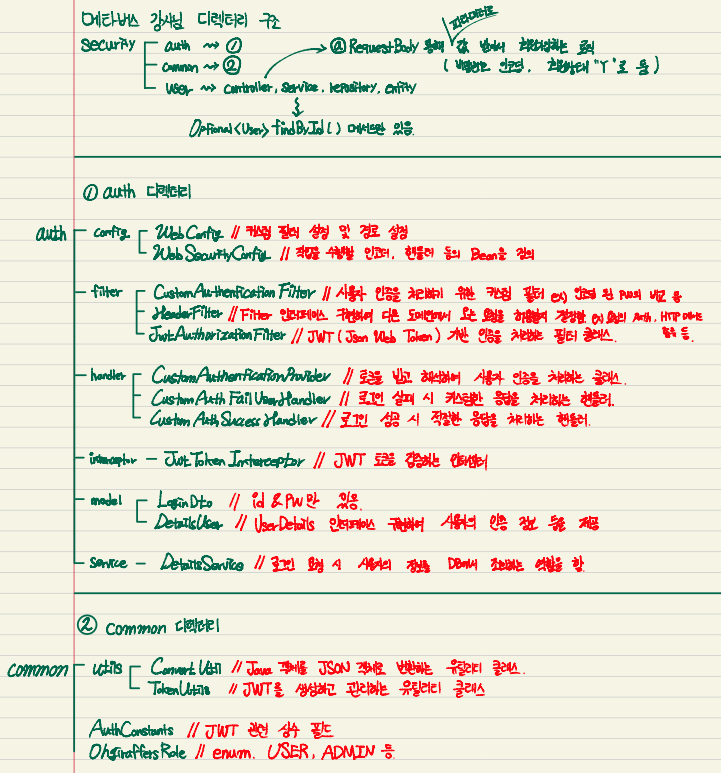 메타버스 강사님 디렉터리 구조
파라미터로
security auth ⇝ ①
@RequestBody 통해 값 받아서 회원가입하는 로직
common ⇝ ②
(비밀번호 인코딩, 회원상태 "Y"로 둠)
user ⇝ controller, service, repository, entity
Optional<User> findById() 메서드만 있음
① auth 디렉터리
auth config WebConfig // 커스텀 필터 설정 및 경로 설정
WebSecurityConfig // 작업을 수행할 인코더, 핸들러 등의 Bean을 정의
filter CustomAuthenticationFilter // 사용자 인증을 처리하기 위한 커스텀 필터 ex) 인코딩 된 PW의 비교 등
HeaderFilter // Filter 인터페이스 구현하여 다른 도메인에서 오는 요청을 허용할지 결정함. ex) 요청의 Auth, HTTP 메서드
허용 등.
JwtAuthorizationFilter // JWT (Json Web Token) 기반 인증을 처리하는 필터 클래스.
handler CustomAuthenticationProvider // 토큰을 받고 해석하여 사용자 인증을 처리하는 클래스.
Custom Auth Fail UserHandler // 로그인 실패 시 커스텀한 응답을 처리하는 핸들러.
Custom Auth Success Handler // 로그인 성공 시 적절한 응답을 처리하는 핸들러.
interceptor - Jwt Token Interceptor // JWT 토큰을 검증하는 인터셉터
model LoginDto // id & PW만 있음.
DetailsUser // UserDetails 인터페이스 구현하여 사용자의 인증 정보 등을 제공
service - DetailsService // 로그인 요청 시 사용자의 정보를 DB에서 조회하는 역할을 함.
② common 디렉터리
common utils Convert Util // Java 객체를 JSON 객체로 변환하는 유틸리티 클래스.
TokenUtils // JWT를 생성하고 관리하는 유틸리티 클래스
AuthConstants // JWT 관련 상수 필드
OhgiraffersRole // enum. USER, ADMIN 등.